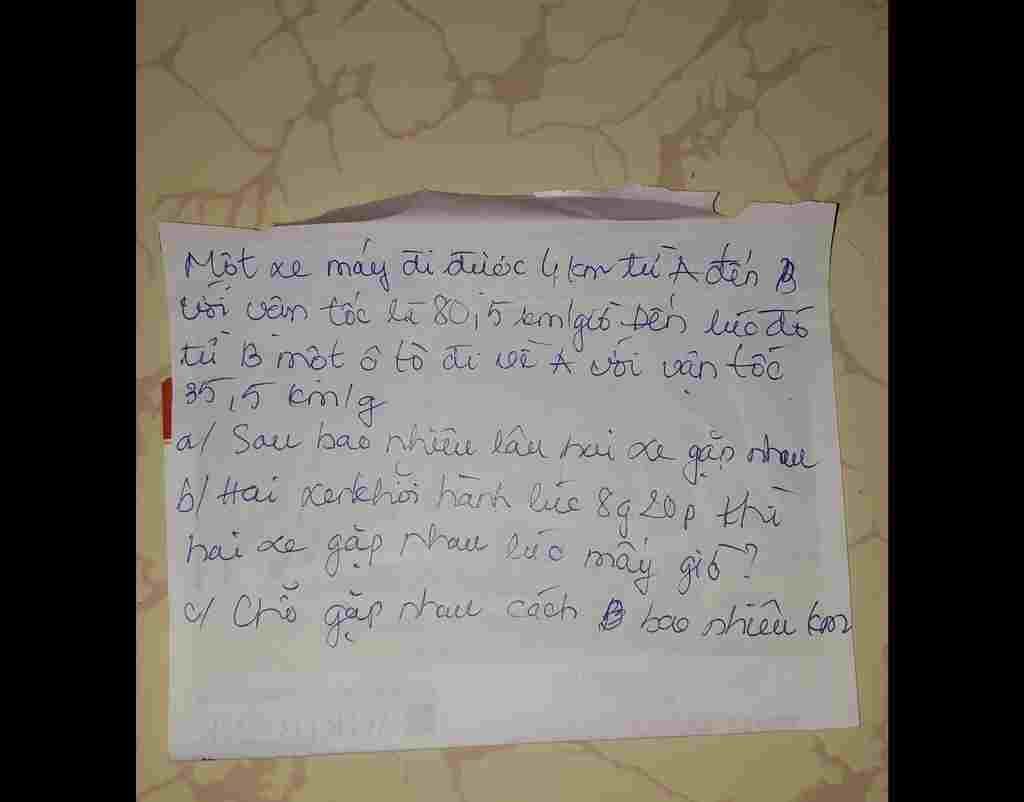 Một xe máy đi được 4 km từ A đến B
với vận tốc là 80,5 km/giờ. Đến lúc đó
từ B một ô tô đi về A với vận tốc
35,5 km/g
a/ Sau bao nhiêu lâu hai xe gặp nhau
b/ Hai xe khởi hành lúc 8g20p thì
hai xe gặp nhau lúc mấy giờ?
c/ Chỗ gặp nhau cách B bao nhiêu km